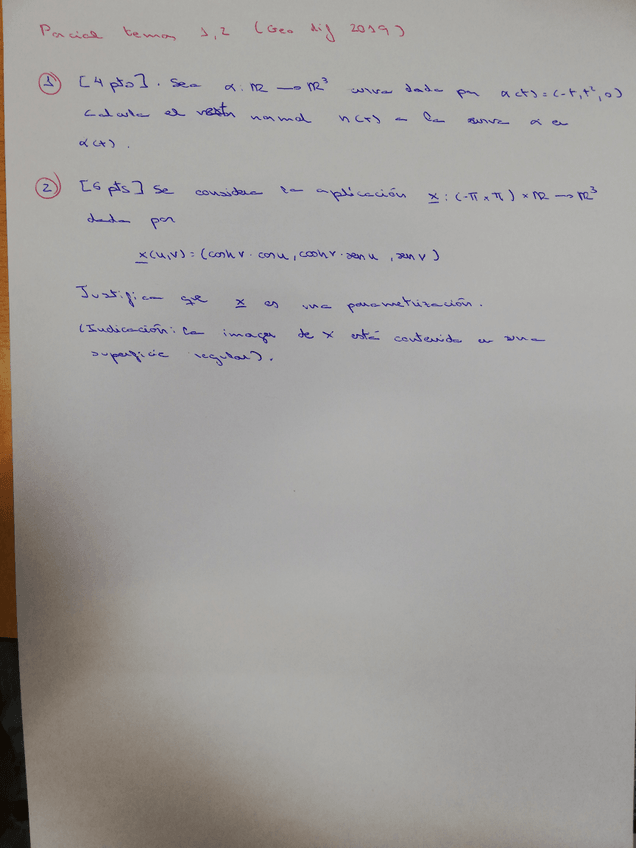 Parcial temas 1,2 (Geo dif 2019)
1 [4 pts]. Sea α: ℝ → ℝ³ curva dada por α(t)=(-t,t²,0)
Calcula el vector normal n(t) a la curva α en
α(t).
2 [6 pts] Se considera la aplicación x: (-π,π)×ℝ → ℝ³
dada por
x(u,v)=(cosh v·cos u, cosh v·sen u, sen v)
Justifica que x es una parametrización.
(Indicación: la imagen de x está contenida en una
superficie regular).